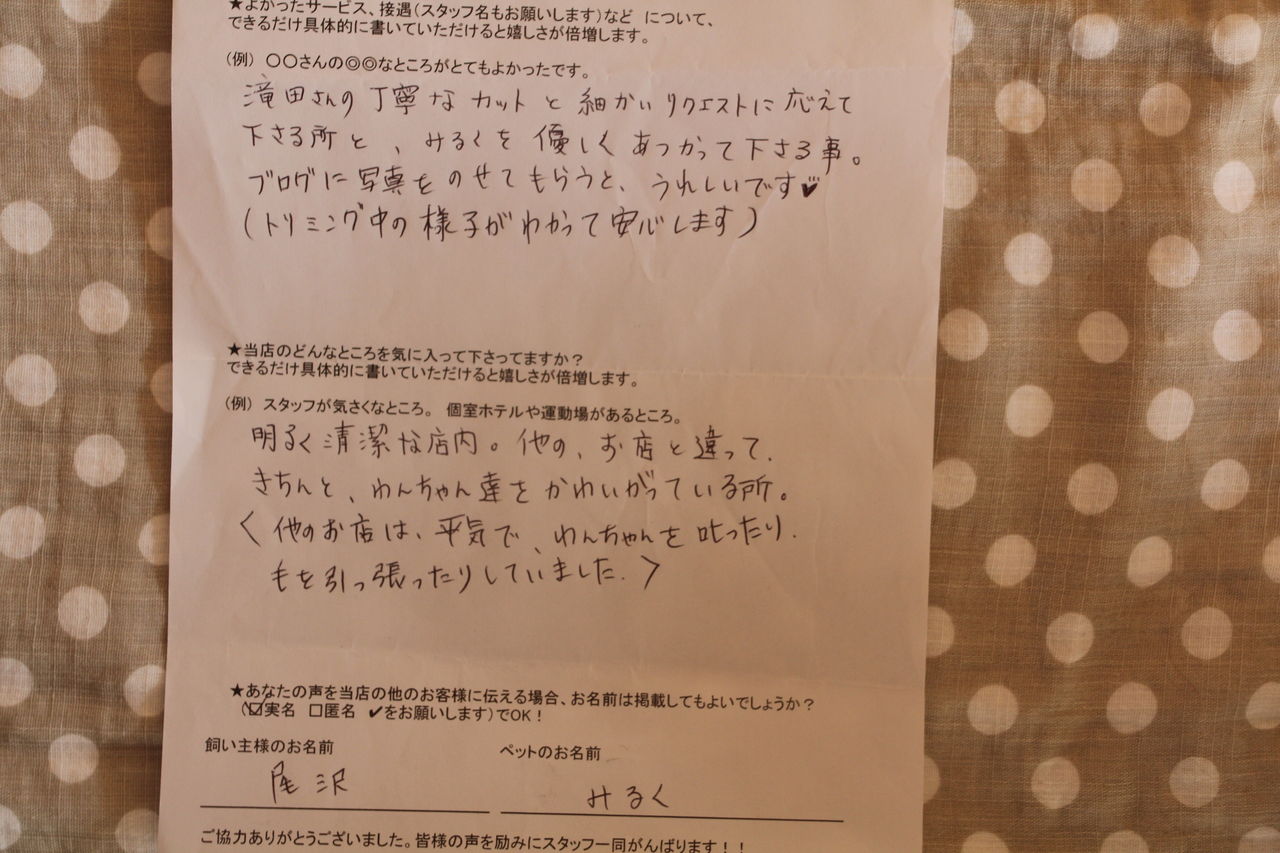 ★よかったサービス、接遇（スタッフ名もお願いします）など について、
できるだけ具体的に書いていただけると嬉しさが倍増します。
（例） 〇〇さんの◎◎なところがとてもよかったです。
滝田さんの丁寧なカットと細かいリクエストに応えて
下さる所と、みるくを優しくあつかって下さる事。
ブログに写真をのせてもらうと、うれしいです♥
（トリミング中の様子がわかって安心します）
★当店のどんなところを気に入って下さってますか？
できるだけ具体的に書いていただけると嬉しさが倍増します。
（例） スタッフが気さくなところ。 個室ホテルや運動場があるところ。
明るく清潔な店内。他の、お店と違って、
きちんと、わんちゃん達をかわいがっている所。
〈他のお店は、平気で、わんちゃんを叱ったり、
毛を引っ張ったりしていました。〉
★あなたの声を当店の他のお客様に伝える場合、お名前は掲載してもよいでしょうか？
（☑実名 □匿名 ✔をお願いします）でOK！
飼い主様のお名前 ペットのお名前
尾沢 みるく
ご協力ありがとうございました。皆様の声を励みにスタッフ一同がんばります！！